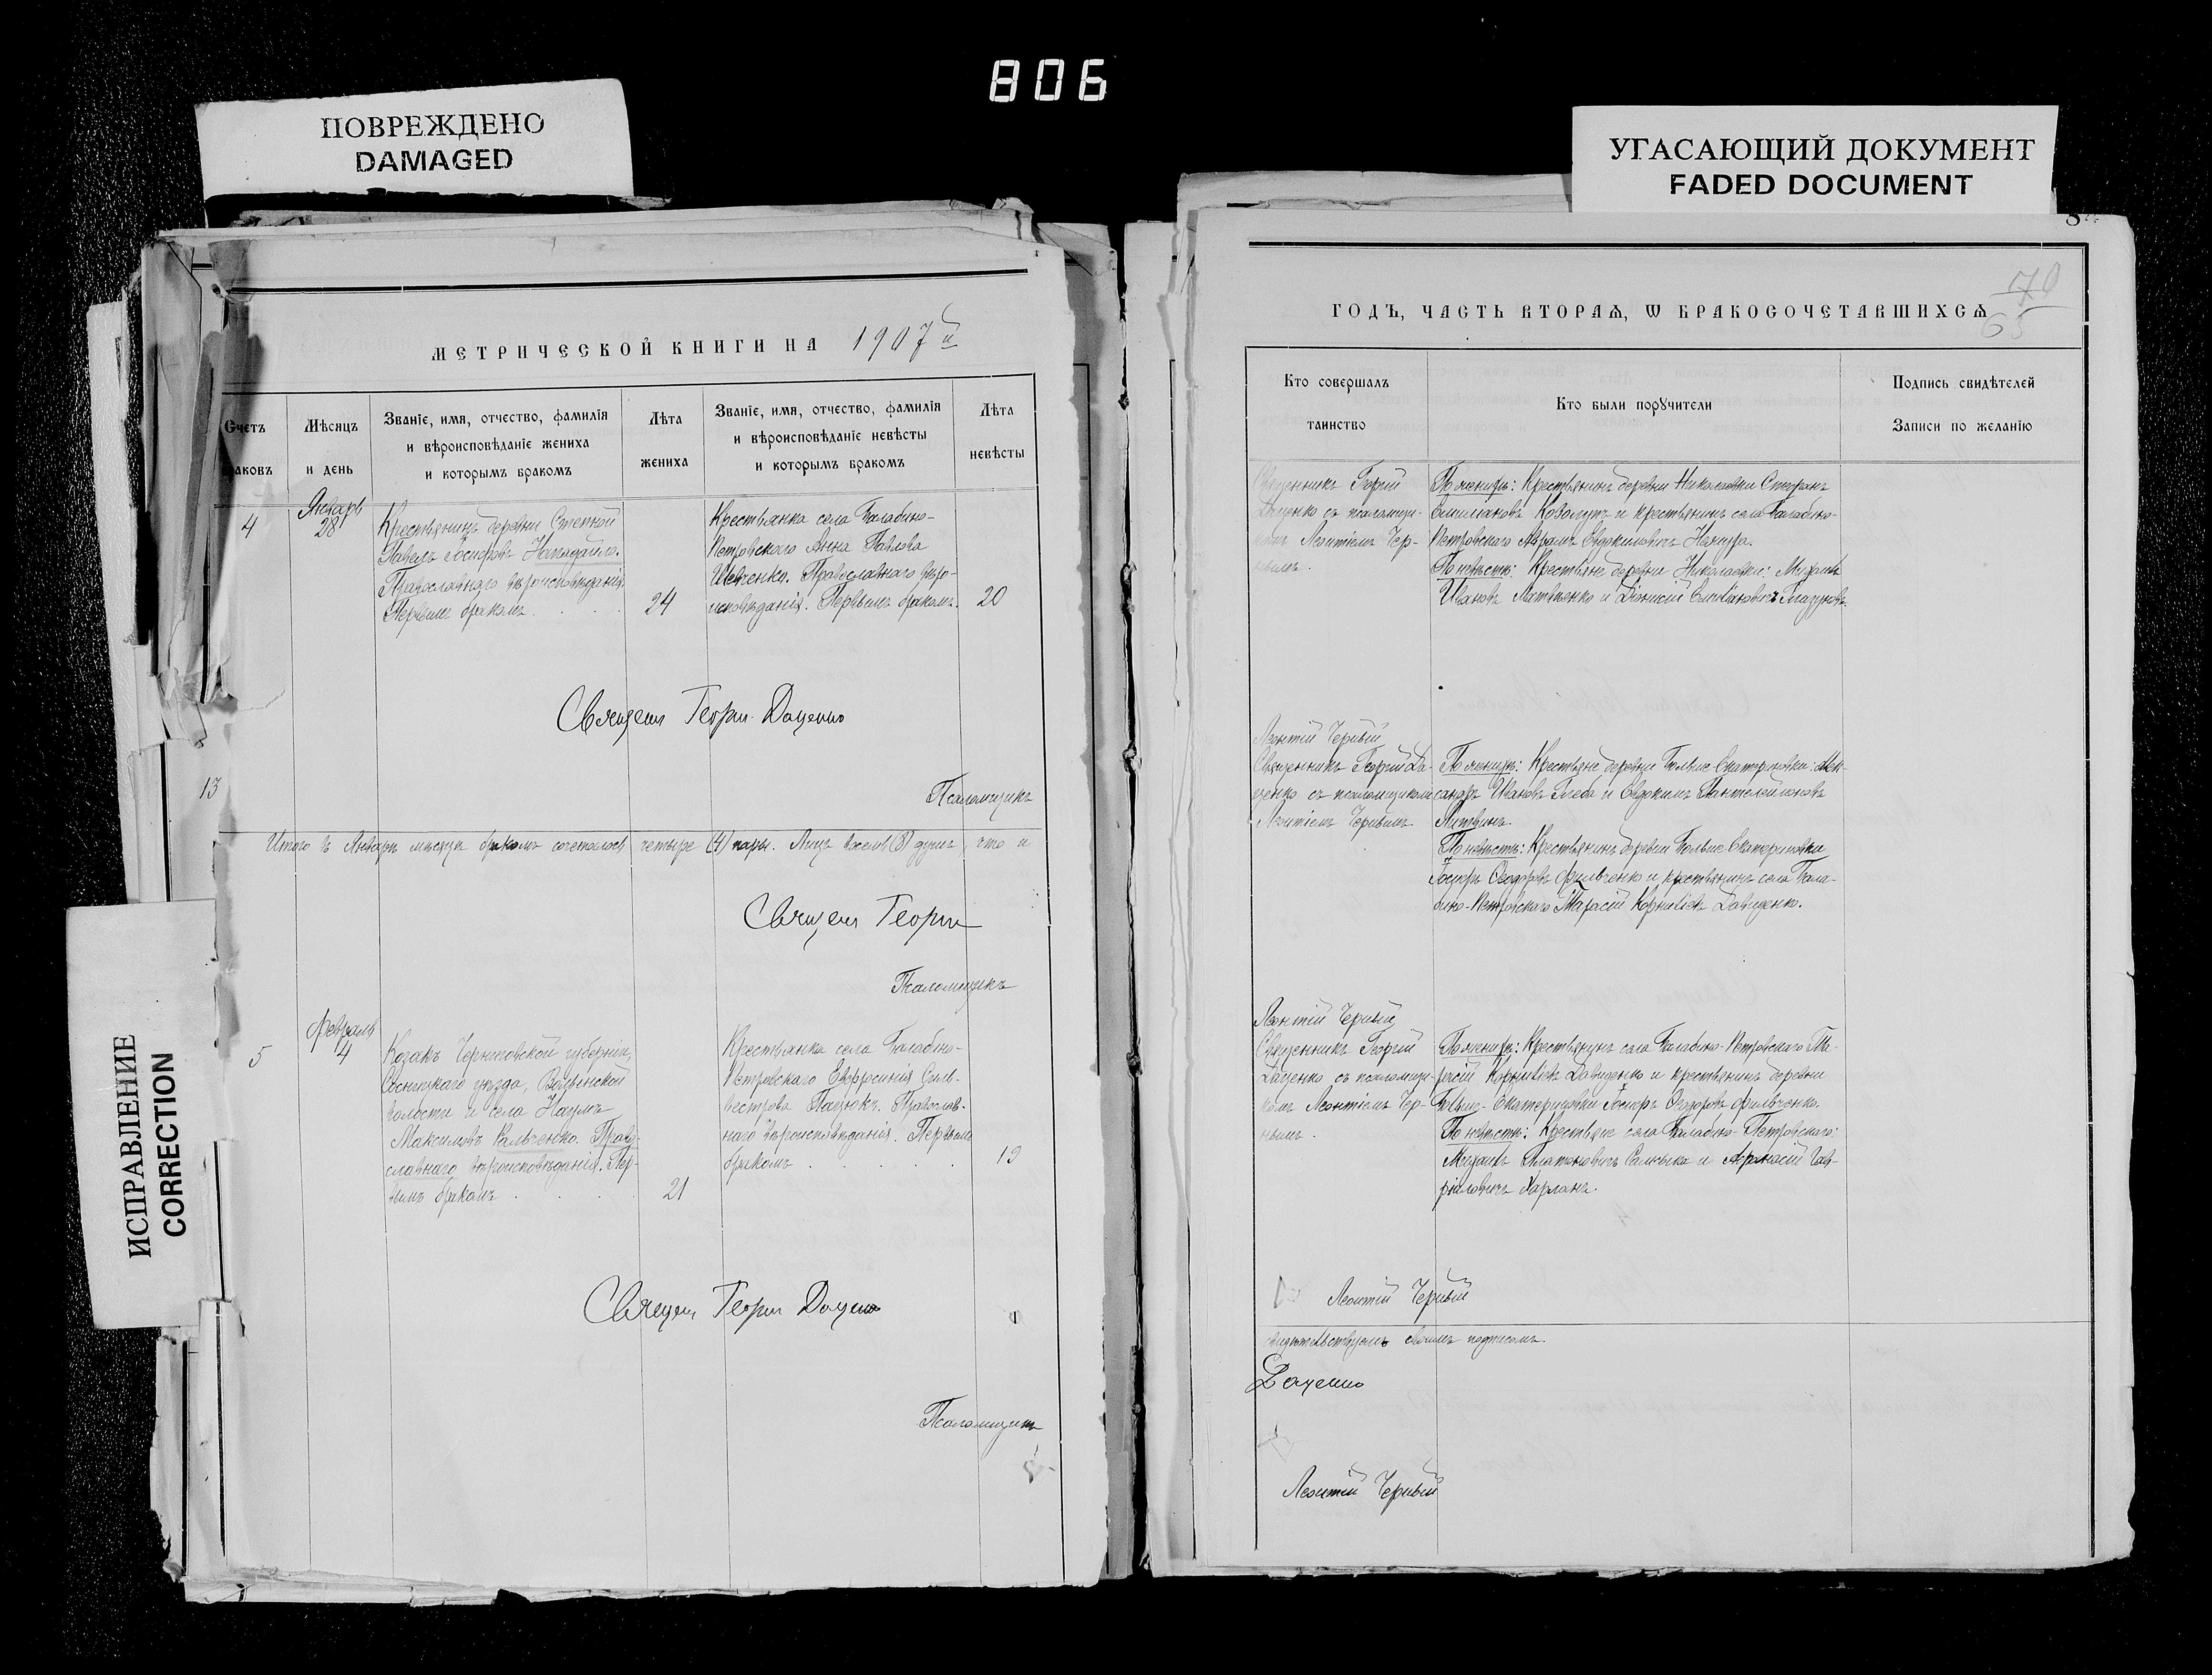 806
ПОВРЕЖДЕНО
DAMAGED
УГАСАЮЩИЙ ДОКУМЕНТ
FADED DOCUMENT
ИСПРАВЛЕНИЕ
CORRECTION
МЕТРИЧЕСКОЙ КНИГИ НА 1907й
Счетъ
браковъ
Мѣсяцъ
и день
Званіе, имя, отчество, фамилія
и вѣроисповѣданіе жениха
и которымъ бракомъ
Лѣта
жениха
Званіе, имя, отчество, фамилія
и вѣроисповѣданіе невѣсты
и которымъ бракомъ
Лѣта
невѣсты
4
Январь
28
Крестьянинъ деревни Степной
Павелъ Іосифовъ Нападайло.
Православнаго вѣроисповѣданія.
Первымъ бракомъ
24
Крестьянка села Балабино-
Петровскаго Анна Павлова
Шевченко. Православнаго вѣро-
исповѣданія. Первымъ бракомъ.
20
Священ Георги Даценко
13
Псаломщикъ
Итого въ Январѣ мѣсяцѣ бракомъ сочеталось четыре (4) пары. Лицъ восемь (8) душъ, что и
Священ Георги
Псаломщикъ
5
Февраль
4
Козакъ Черниговской губерніи,
Сосницкаго уѣзда,
волости и села Наумъ
Максимовъ Кальченко. Право-
славнаго вѣроисповѣданія. Пер-
вымъ бракомъ
21
Крестьянка села Балабино-
Петровскаго Евфросинія Силь-
вестрова Пацюкъ. Православ-
наго вѣроисповѣданія. Первымъ
бракомъ
19
Священ Георги Даценко
Псаломщикъ
70
65
ГОДЪ, ЧАСТЬ ВТОРАѦ, Ѡ БРАКОСОЧЕТАВШИХСѦ
Кто совершалъ
таинство
Кто были порꙋчители
Подпись свидѣтелей
Записи по желанію
Священникъ Георгій
Даценко съ псаломщи-
комъ Леонтіемъ Чер-
нымъ.
По женихѣ: Крестьянинъ деревни Николаевки Стефанъ
Козолупъ и крестьянинъ села Балабино-
Петровскаго Аврамъ Евдокимовичъ
По невѣстѣ: Крестьяне деревни Николаевки: Михаилъ
Ивановъ Матвѣенко и Діонисій
Леонтій Черный
Священникъ Георгій Да-
ценко съ псаломщикомъ
Леонтіемъ Чернымъ
По женихѣ: Крестьяне деревни Больше Екатериновки: Алек-
сандръ Ивановъ Глеба и Евдокимъ Пантелеймоновъ
Литвинъ.
По невѣстѣ: Крестьянинъ деревни Больше Екатериновки
Іосифъ Ѳеодоровъ Фильченко и крестьянинъ села Бала-
бино-Петровскаго Тарасій Корніевъ Давиденко.
Леонтій Черный
Священникъ Георгій
Даценко съ псаломщи-
комъ Леонтіемъ Чер-
нымъ.
По женихѣ: Крестьянинъ села Балабино-Петровскаго Та-
расій Корніевъ Давиденко и крестьянинъ деревни
Больше-Екатериновки Іосифъ Ѳеодоровъ Фильченко.
По невѣстѣ: Крестьяне села Балабино-Петровскаго:
Михаилъ Платоновичъ и Аѳанасій Гав-
ріиловичъ Харланъ.
Леонтій Черный
свидѣтельствуемъ своимъ подписомъ.
Даценко
Леонтій Черный